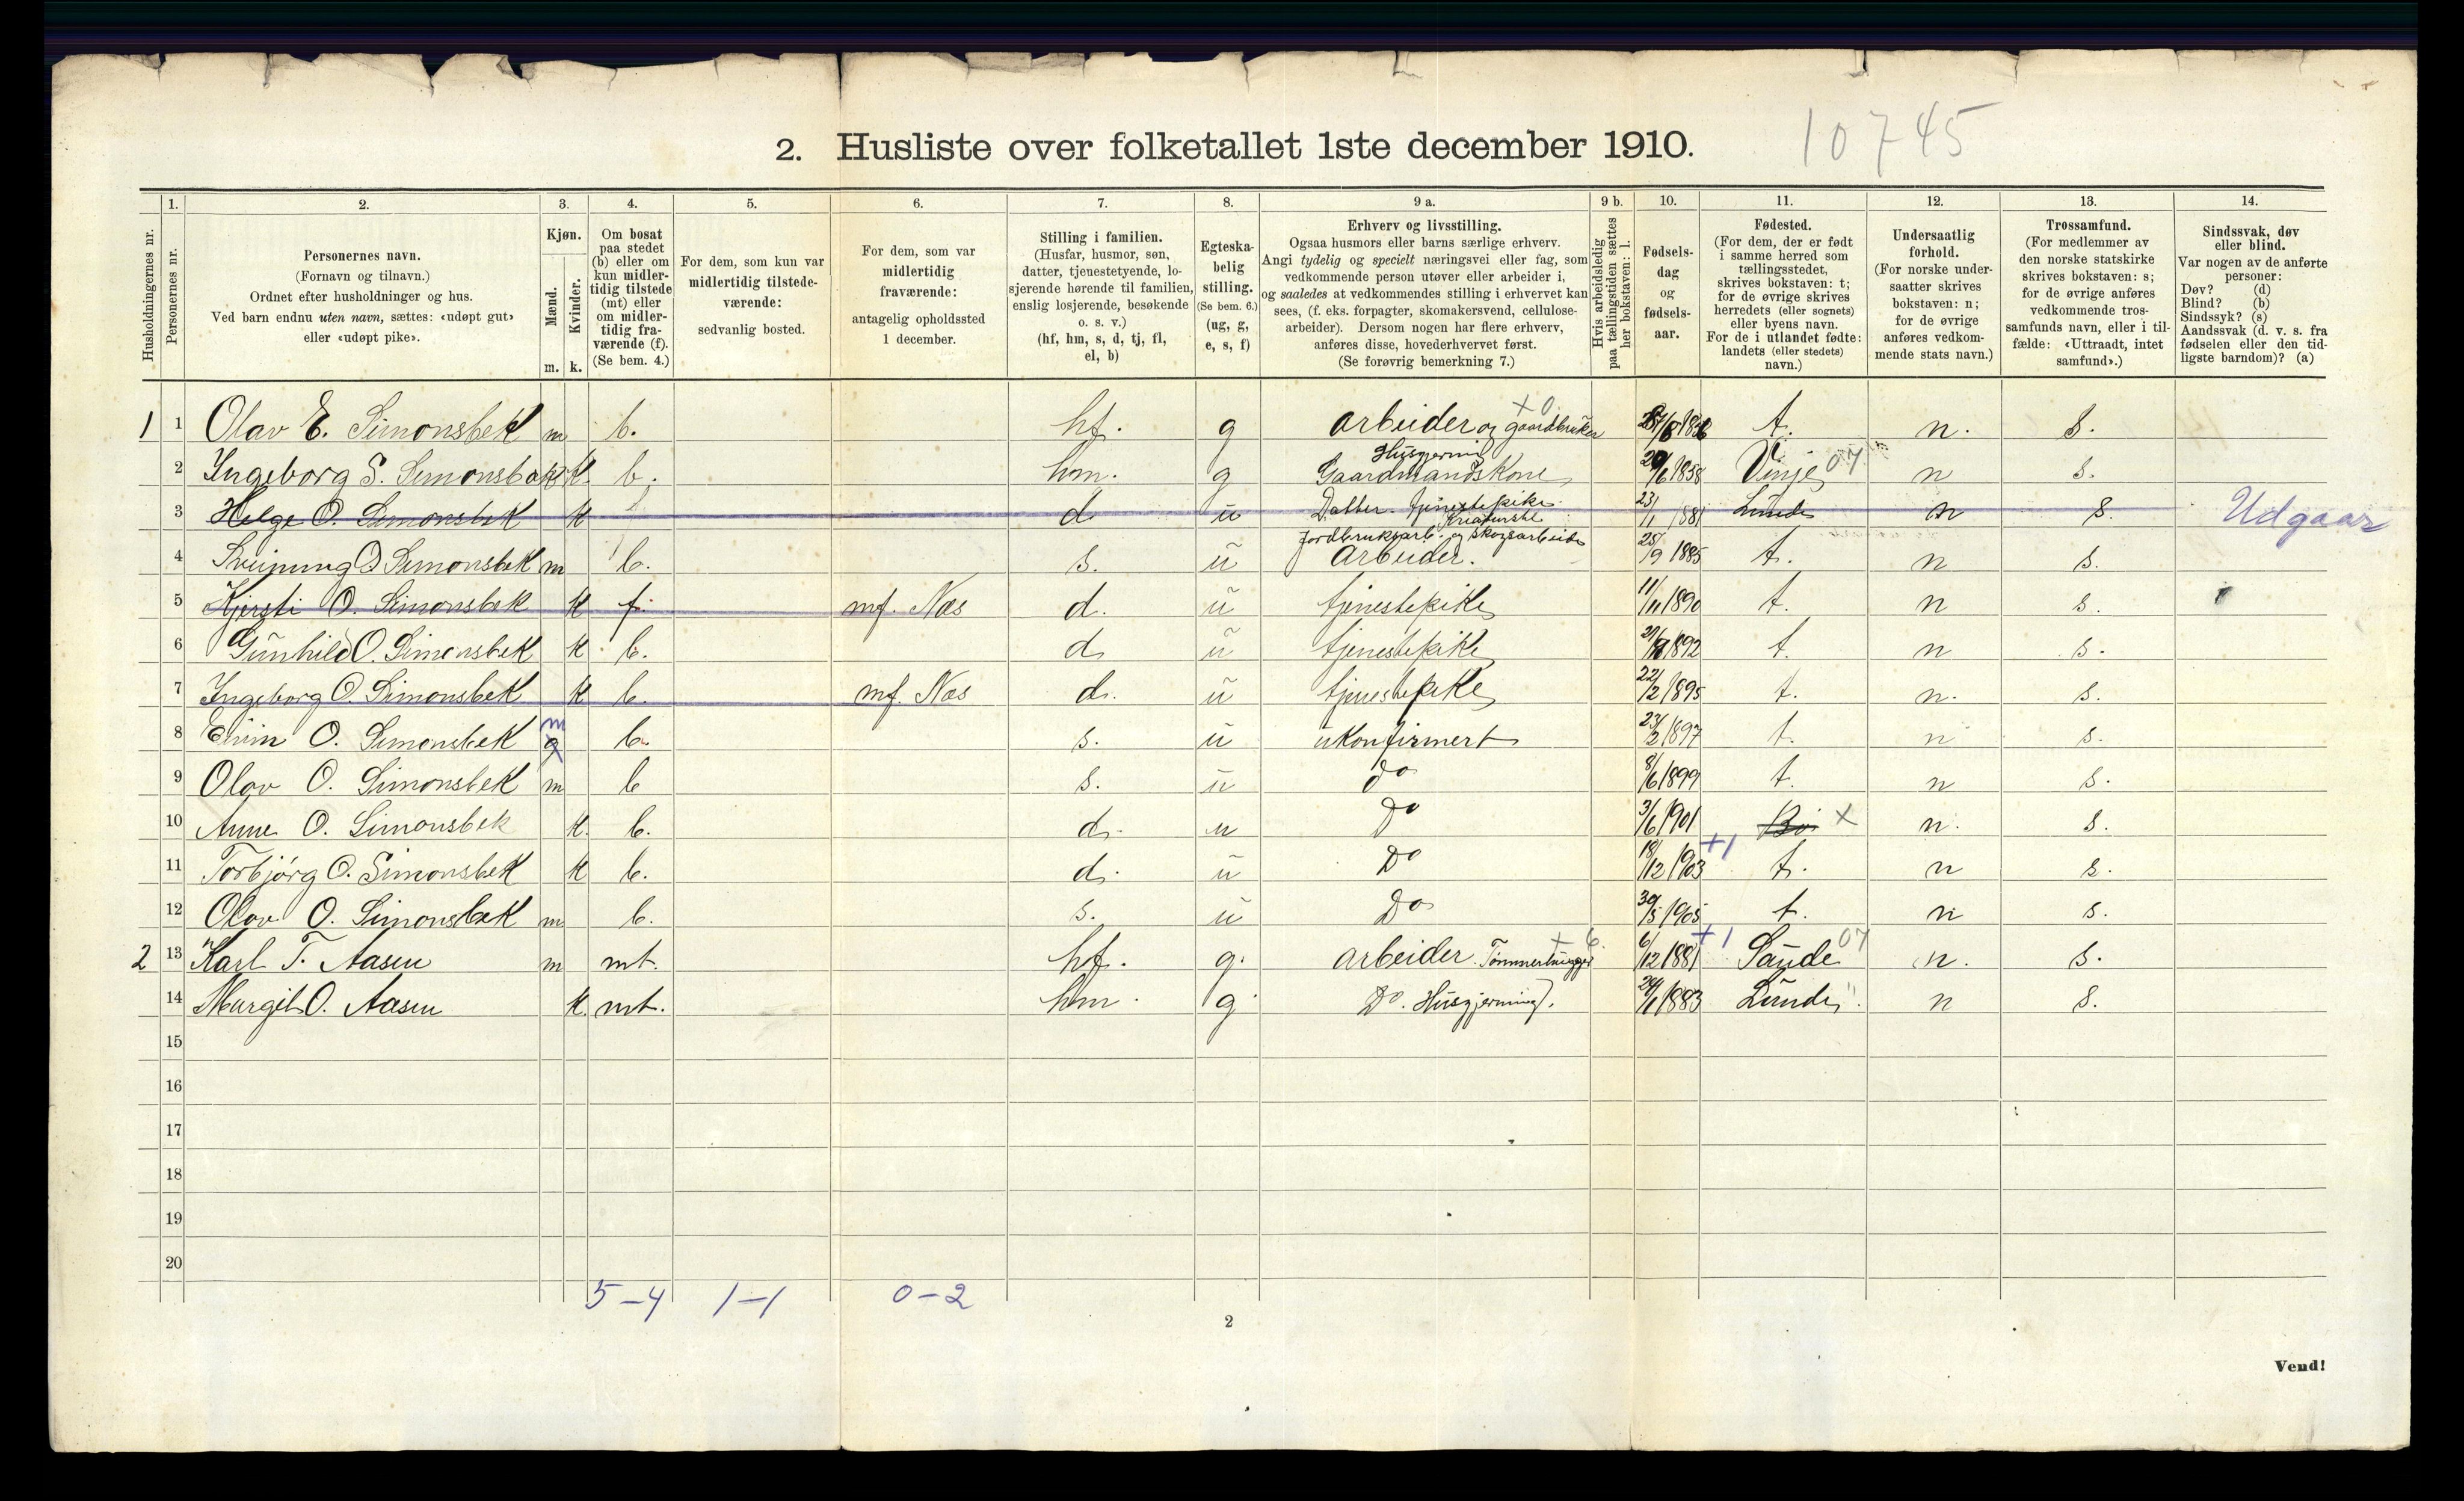 10745
2. Husliste over folketallet 1ste december 1910.
1. 2. 3. 4. 5. 6. 7. 8. 9 a. 9 b. 10. 11. 12. 13. 14.
Husholdningernes nr.
Personernes nr.
Personernes navn.
(Fornavn og tilnavn.)
Ordnet efter husholdninger og hus.
Ved barn endnu uten navn, sættes: «udøpt gut»
eller «udøpt pike».
Kjøn.
Mænd.
Kvinder.
m. k.
Om bosat
paa stedet
(b) eller om
kun midler-
tidig tilstede
(mt) eller
om midler-
tidig fra-
værende (f).
(Se bem. 4.)
For dem, som kun var
midlertidig tilstede-
værende:
sedvanlig bosted.
For dem, som var
midlertidig
fraværende:
antagelig opholdssted
1 december.
Stilling i familien.
(Husfar, husmor, søn,
datter, tjenestetyende, lo-
sjerende hørende til familien,
enslig losjerende, besøkende
o. s. v.)
(hf, hm, s, d, tj, fl,
el, b)
Egteska-
belig
stilling.
(Se bem. 6.)
(ug, g,
e, s, f)
Erhverv og livsstilling.
Ogsaa husmors eller barns særlige erhverv.
Angi tydelig og specielt næringsvei eller fag, som
vedkommende person utøver eller arbeider i,
og saaledes at vedkommendes stilling i erhvervet kan
sees, (f. eks. forpagter, skomakersvend, cellulose-
arbeider). Dersom nogen har flere erhverv,
anføres disse, hovederhvervet først.
(Se forøvrig bemerkning 7.)
Hvis arbeidsledig
paa tællingstiden sættes
her bokstaven: l.
Fødsels-
dag
og
fødsels-
aar.
Fødested.
(For dem, der er født
i samme herred som
tællingsstedet,
skrives bokstaven: t;
for de øvrige skrives
herredets (eller sognets)
eller byens navn.
For de i utlandet fødte:
landets (eller stedets)
navn.)
Undersaatlig
forhold.
(For norske under-
saatter skrives
bokstaven: n;
for de øvrige
anføres vedkom-
mende stats navn.)
Trossamfund.
(For medlemmer av
den norske statskirke
skrives bokstaven: s;
for de øvrige anføres
vedkommende tros-
samfunds navn, eller i til-
fælde: «Uttraadt, intet
samfund».)
Sindssvak, døv
eller blind.
Var nogen av de anførte
personer:
Døv? (d)
Blind? (b)
Sindssyk? (s)
Aandssvak (d. v. s. fra
fødselen eller den tid-
ligste barndom)? (a)
1 1 Olav E. Simonsbek m b. hf. g arbeider og gaardbruker t. n. s.
Husgjerning
2 Ingeborg S. Simonsbek K. b. hm. g Gaardmandskone 1858 Vinje 07 n s.
3 Helge O. Simonsbek K d ü Datter. tjenestepike 23/1 1881 Lunde n s. Udgaar
jordbruksarb. og skogsarbeide
4 Sveinung O Simonsbek m b. s. ü Arbeider. 25/9 1885 t. n s.
5 Kjersti O. Simonsbek K f. mf. Nes d. ü tjenestepike 11/11 1890 t. n s.
6 Gunhild O. Simonsbek K b. d ü tjenestepike 1892 t. n s.
7 Ingeborg O. Simonsbek K b. mf. Nes d. ü tjenestepike 22/2 1895 t. n. s.
8 O. Simonsbek m b. s. ü ukonfirmert 23/2 1897 t. n s.
9 Olav O. Simonsbek m b s. ü do 8/6 1899 t. n s.
10 Anne O. Simonsbek K. b. d. u Do 3/6 1901 Bø X n. s.
11 Torbjörg O. Simonsbek K b. d. ü Do 18/12 1903 +1 t. n s.
12 Olav O. Simonsbek m b. s. ü Do 30/5 1905 t. n s.
2 13 Karl T. Aasen m mt. hf. g. arbeider. Tømmerhugger + 6 6/12 1881 +1 Saude 07 n. s.
14 Margit O. Aasen K. mt. hm. g. Do. Husgjerning. 1883 Lunde n s.
15
16
17
18
19
20
5-4 1-1 0-2
2
Vend!